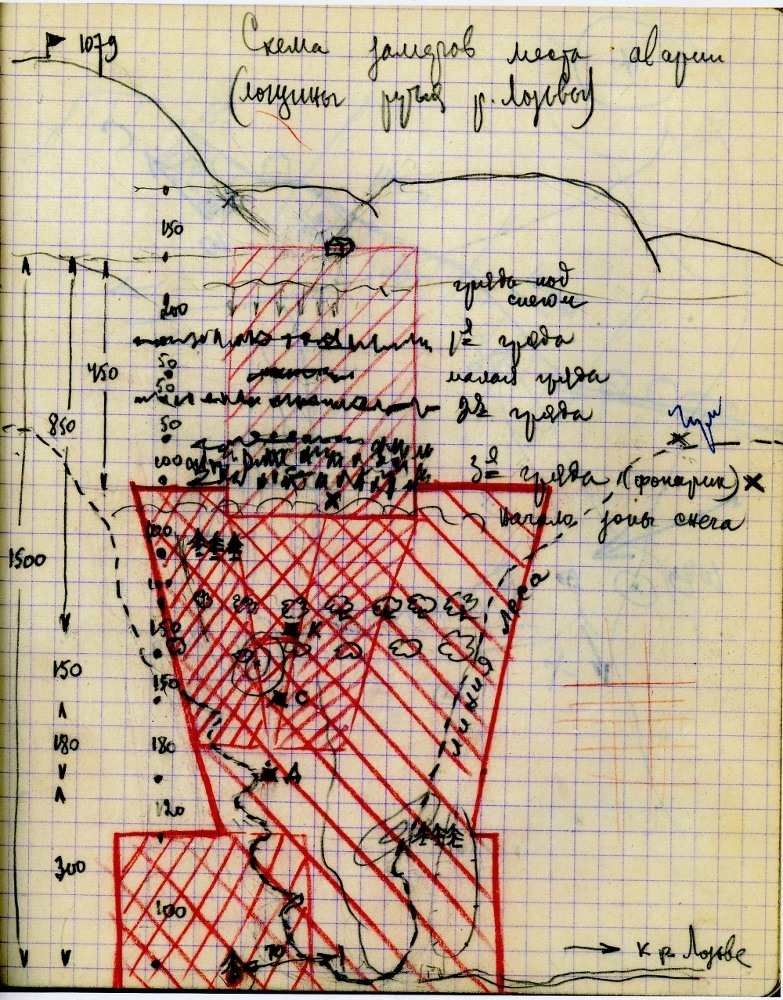 1079
Схема замеров места аварии
(лощины ручья р. Лозьвы)
150
гряда под
снегом
200
1-я гряда
50
450
малая гряда
50
2-я гряда
850
50
чум
100
3-я гряда (фонарик) х
начало зоны снега
1500
150
К
150
150
С
линия леса
180
180
Д
120
300
100
70
к р. Лозьве